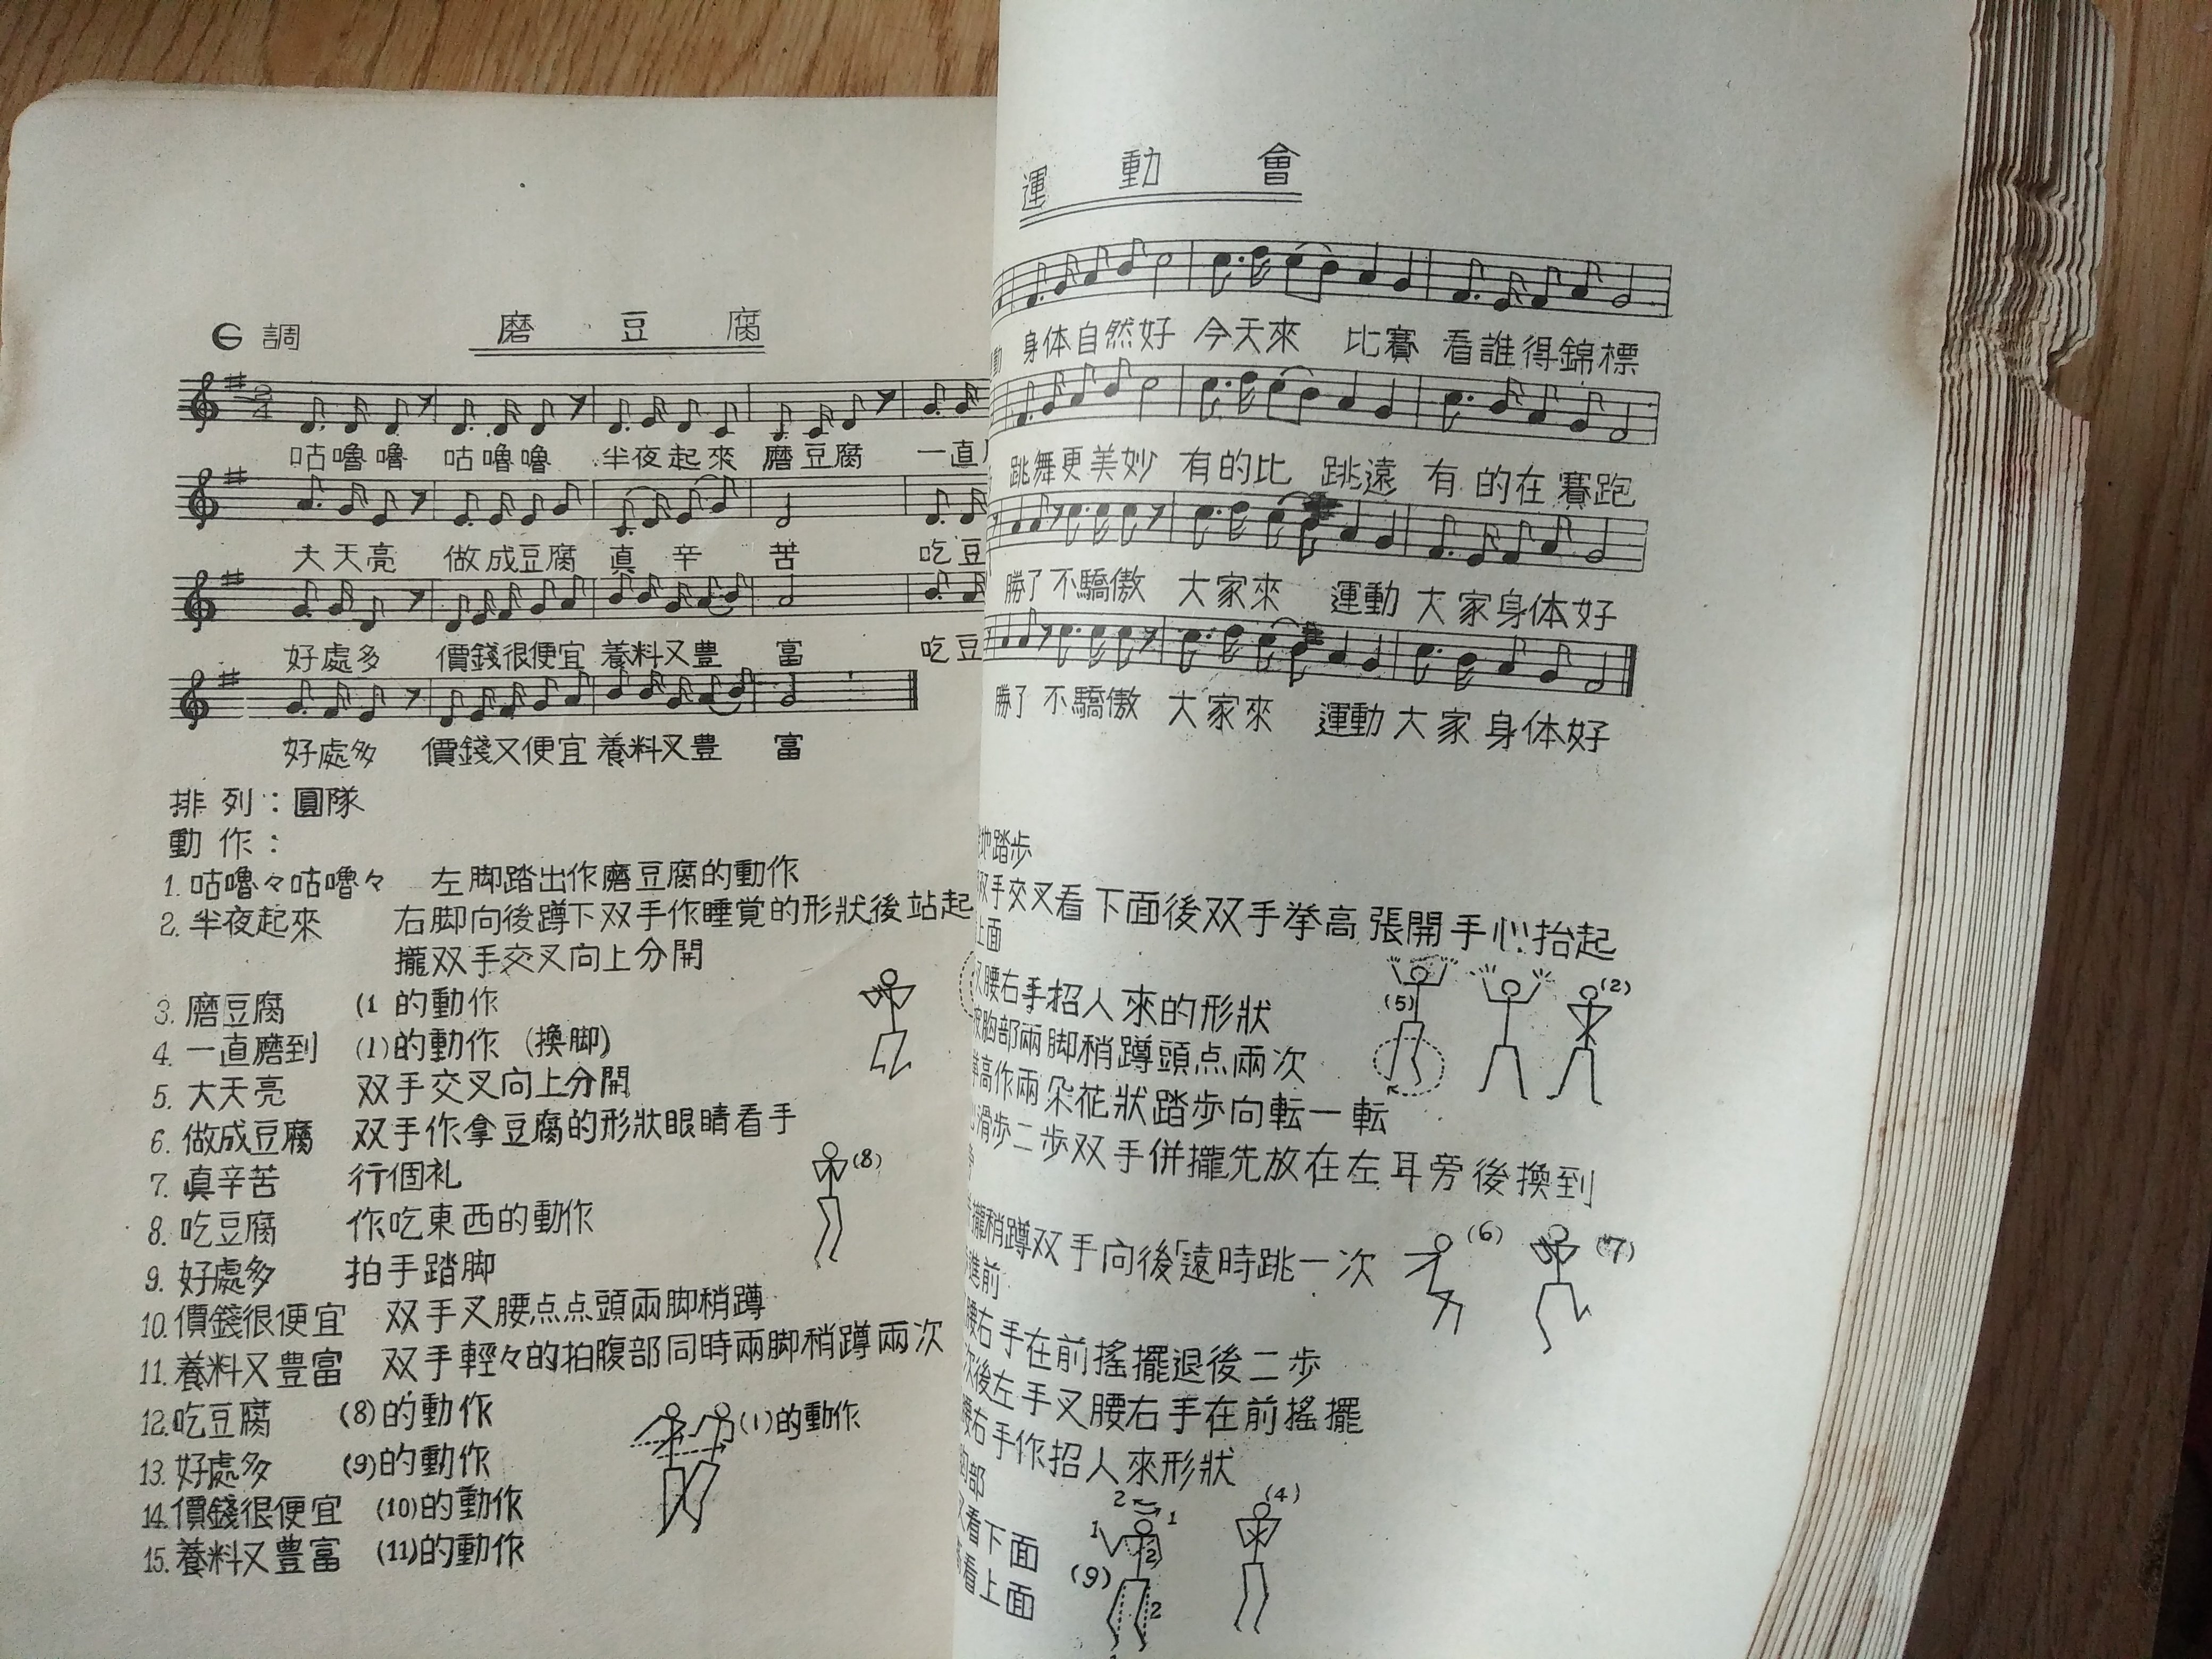 磨豆腐
G調
2
4
咕嚕嚕 咕嚕嚕 半夜起來 磨豆腐 一直
大天亮 做成豆腐 真辛苦 吃豆
好處多 價錢很便宜 養料又豊富 吃豆
好處多 價錢又便宜 養料又豊富
排列：圓隊
動作：
1. 咕嚕々咕嚕々 左脚踏出作磨豆腐的動作
2. 半夜起來 右脚向後蹲下双手作睡覚的形狀後站起
攏双手交叉向上分開
3. 磨豆腐 (1 的動作
4. 一直磨到 (1)的動作 (換脚)
5. 大天亮 双手交叉向上分開
6. 做成豆腐 双手作拿豆腐的形狀眼睛看手
7. 真辛苦 行個礼
8. 吃豆腐 作吃東西的動作
(8)
9. 好處多 拍手踏脚
10. 價錢很便宜 双手叉腰点点頭兩脚稍蹲
11. 養料又豊富 双手輕々的拍腹部同時兩脚稍蹲兩次
12. 吃豆腐 (8)的動作
(1)的動作
13. 好處多 (9)的動作
14. 價錢很便宜 (10)的動作
15. 養料又豊富 (11)的動作
運動會
動 身体自然好 今天來 比賽 看誰得錦標
跳舞更美妙 有的比 跳遠 有的在賽跑
勝了不驕傲 大家來 運動 大家身体好
勝了不驕傲 大家來 運動 大家身体好
地踏步
双手交叉看下面後双手拳高張開手心抬起
上面
叉腰右手招人來的形狀
(5) (2)
胸部兩脚稍蹲頭点兩次
高作兩朶花狀踏步向転一転
滑步二步双手併攏先放在左耳旁後換到
攏稍蹲双手向後「遠時跳一次
(6) (7)
進前
腰右手在前搖擺退後二步
次後左手叉腰右手在前搖擺
腰右手作招人來形狀
部
叉看下面
看上面
2 1
1 2
(9) 2
(4)